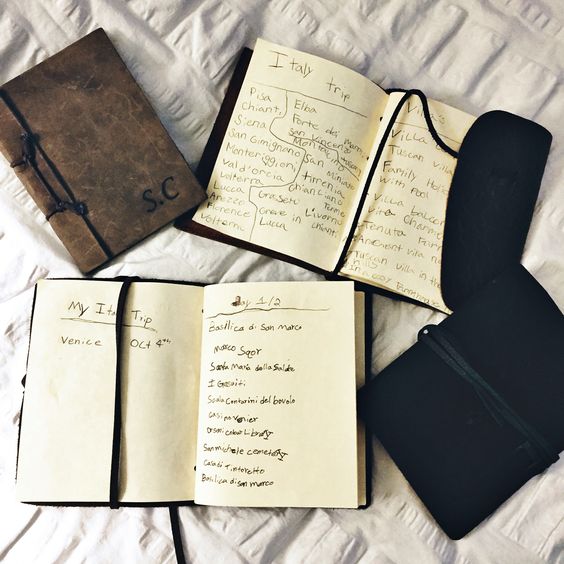 S.C
Italy trip
Pisa
Chianti
Siena
San Gimignano
Monteriggioni
Val d'orcia
Volterra
Lucca
Arezzo
Florence
Volterra
Elba
Forte dei
San Vincenzo
San Miniato
Tirrenia
Chianciano
Terme
Livorno
Greve in chianti
Lucca
Villa's
Villa
Tuscan villa
Family
With Pool
Villa
Villa
Tenuta Farm
Ancient villa
Tuscan villa in the
hills
In a cosy Farmhouse
My Italy Trip
Venice Oct 4th
Day 1/2
Basilica di San Marco
Marco Sqor
Santa Maria dalla Salute
I Gesuiti
Scala Contarini del bovolo
Casino Venier
Library
San michele cemetery
Casa di Tintoretto
Basilica di san marco